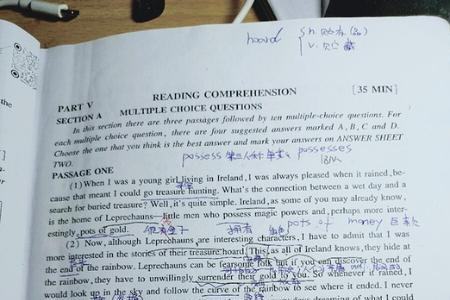 hoard { n. 贮存(物)
v. 贮藏
PART V READING COMPREHENSION [35 MIN]
SECTION A MULTIPLE CHOICE QUESTIONS
In this section there are three passages followed by ten multiple-choice questions. For
each multiple choice question, there are four suggested answers marked A, B, C and D.
Choose the one that you think is the best answer and mark your answers on ANSWER SHEET
TWO.
possess 第三人称单数 possesses
PASSAGE ONE
(1) When I was a young girl living in Ireland, I was always pleased when it rained, be-
cause that meant I could go treasure hunting. What's the connection between a wet day and a
search for buried treasure? Well, it's quite simple. Ireland, as some of you may already know,
is the home of Leprechauns—little men who possess magic powers and, perhaps more inter-
estingly, pots of gold. 拥有 pots of money
(2) Now, although Leprechauns are interesting characters, I have to admit that I was
more interested in the stories of their treasure hoard. This, as all of Ireland knows, they hide at
the end of the rainbow. Leprechauns can be fearsome folk but if you can discover the end of
the rainbow, they have to unwillingly surrender their gold to you. So whenever it rained, I
would look up in the sky and follow the curve of the rainbow to see where it ended. I never